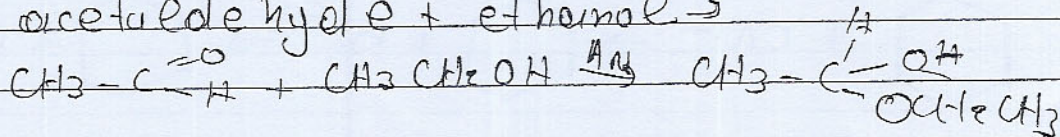 acetaldehyde + ethanol →
CH3-C=O-H + CH3CH2OH → CH3-C-H-OH
OCH2CH3